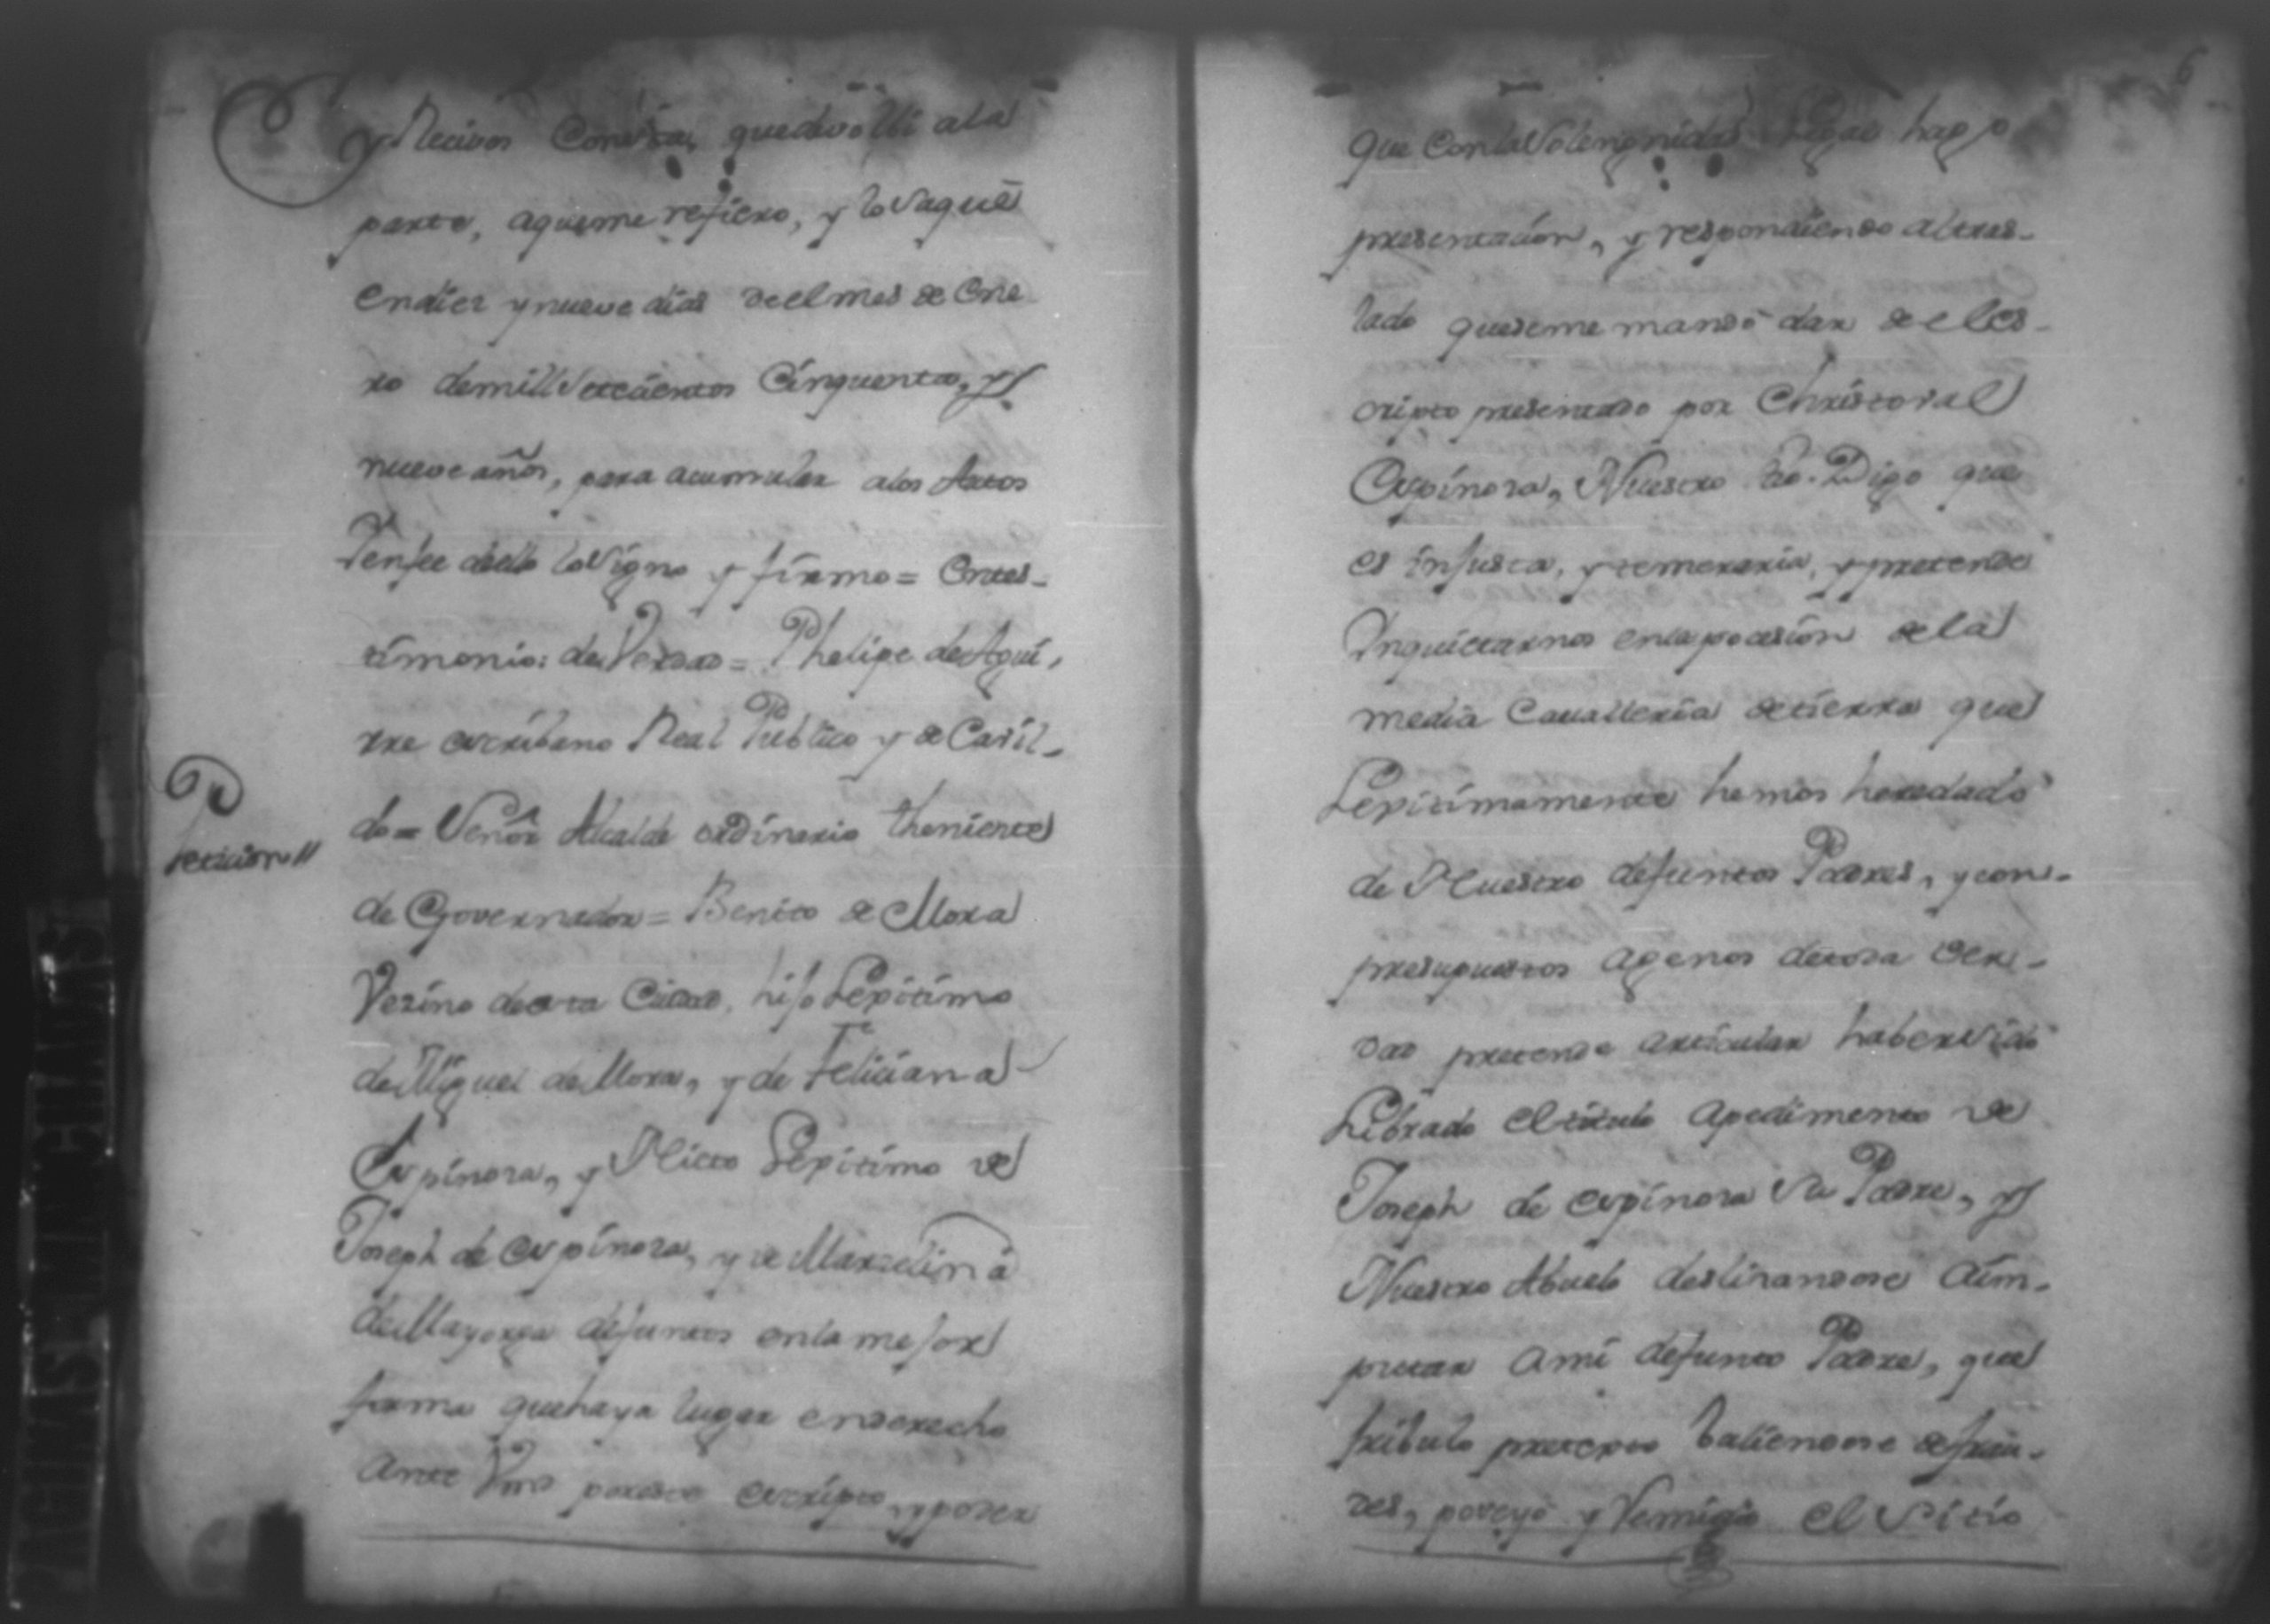 y Recivos Consta, que devolbi ala
parte, aqueme refiero, y lo saque
en diez y nueve dias de el mes de Ene-
ro demill setecientos Cinquenta, y
nueve años, para acumular alos Autos
Yenfee deello losigno y firmo = Entes-
timonio: de Verdad = Phelipe de Agui,
rre escribano Real Publico y de Cavil-
do = Señor Alcalde ordinario theniente
de Governador = Benito de Mora
Vezino deesta Ciudad, hijo Lexitimo
de Miguel de Mora, y de Feliciana
Espinoza, y Nieto Lexitimo de
Joseph de espinoza, y de Marzelina
de Mayorga defuntos en la mejor
forma que haya lugar enderecho
Ante Vmd paresco escripto, y poder
Peticion//
6
Que Con la Solengnidad Legal hago
presentacion, y respondiendo altras-
lado queseme mandó dar de el es-
cripto presentado por Christoval
Espinoza, Nuestro tio. Digo que
es injusta, y temeraria, y pretende
Inquietarnos en la pocesion de la
media Cavalleria detierra que
Lexitimamente hemos heredado
de Nuestro defuntos Padres, y con-
presupuestos agenos detoda ver-
dad pretende articular haber sido
Librado el titulo apedimento de
Joseph de espinoza su Padre, y
Nuestro Abuelo deslizandose aim-
putar a mi defunto Padre, que
fribulo pretexto baliendose defrau-
des, poreyó y el sitio